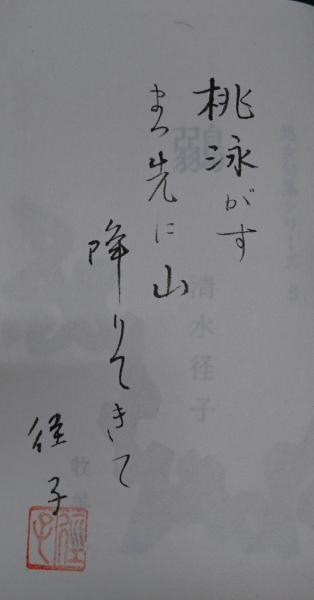 桃泳がす
まつ先に山
降りてきて
径子
清水径子